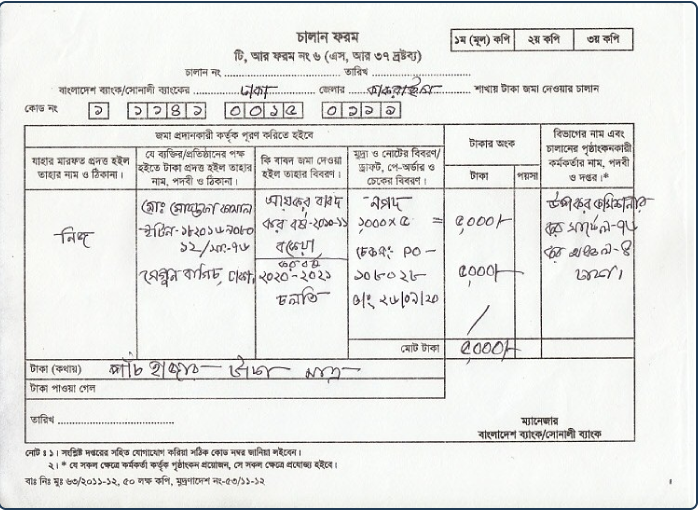 চালান ফরম
১ম (মূল) কপি ২য় কপি ৩য় কপি
টি, আর ফরম নং ৬ (এস, আর ৩৭ দ্রষ্টব্য)
চালান নং ........ তারিখ ........
বাংলাদেশ ব্যাংক/সোনালী ব্যাংকের ঢাকা জেলার কাকরাইল শাখায় টাকা জমা দেওয়ার চালান
কোড নং ১ ১১৪১ ০০১৫ ০১১১
জমা প্রদানকারী কর্তৃক পূরণ করিতে হইবে
টাকার অংক
বিভাগের নাম এবং
চালানের পৃষ্ঠাংকনকারী
কর্মকর্তার নাম, পদবী
ও দপ্তর।*
যাহার মারফত প্রদত্ত হইল
তাহার নাম ও ঠিকানা।
যে ব্যক্তির/প্রতিষ্ঠানের পক্ষ
হইতে টাকা প্রদত্ত হইল তাহার
নাম, পদবী ও ঠিকানা।
কি বাবদ জমা দেওয়া
হইল তাহার বিবরণ।
মুদ্রা ও নোটের বিবরণ/
ড্রাফট, পে-অর্ডার ও
চেকের বিবরণ।
টাকা পয়সা
নিজ
মোঃ
সেগুন বাগিচা, ঢাকা
আয়কর বাবদ
কর বর্ষ-২০১০-১১
বকেয়া
কর বর্ষ
২০২০-২০২১
চলতি
নগদ
১০০০ x ৫ =
PO-
১০৮০২৮
৫০০০/-
৫০০০/-
উপ কর কমিশনার
কর সার্কেল-৭৬
কর অঞ্চল-৪
ঢাকা।
মোট টাকা ৫০০০/-
টাকা (কথায়) পাঁচ হাজার টাকা মাত্র
টাকা পাওয়া গেল
তারিখ ........
ম্যানেজার
বাংলাদেশ ব্যাংক/সোনালী ব্যাংক
নোট ঃ ১। সংশ্লিষ্ট দপ্তরের সহিত যোগাযোগ করিয়া সঠিক কোড নম্বর জানিয়া লইবেন।
২। * যে সকল ক্ষেত্রে কর্মকর্তা কর্তৃক পৃষ্ঠাংকন প্রয়োজন, সে সকল ক্ষেত্রে প্রযোজ্য হইবে।
বাঃ নিঃ মুঃ ৬৩/২০১১-১২, ৫০ লক্ষ কপি, মুদ্রণাদেশ নং-৫৩/১১-১২